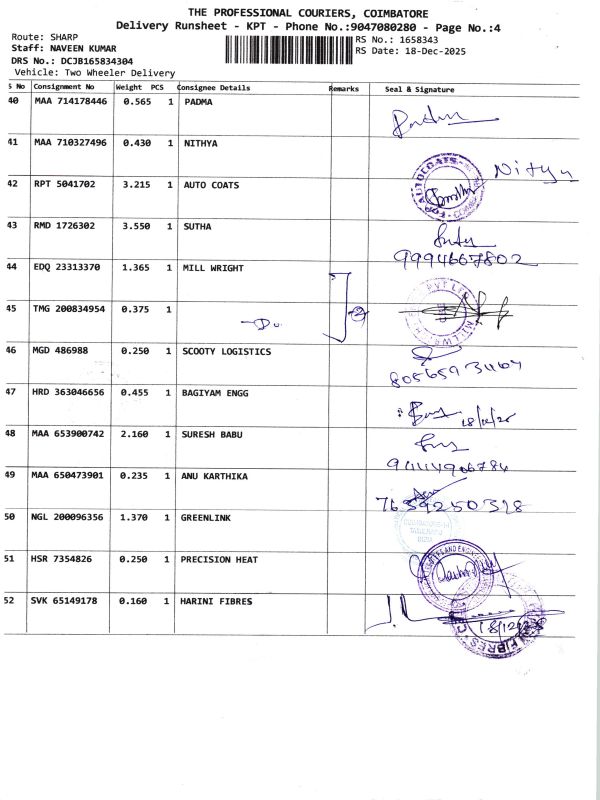 THE PROFESSIONAL COURIERS, COIMBATORE
Delivery Runsheet - KPT - Phone No.:9047080280 - Page No.:4
Route: SHARP
RS No.: 1658343
Staff: NAVEEN KUMAR
RS Date: 18-Dec-2025
DRS No.: DCJB165834304
Vehicle: Two Wheeler Delivery
S No Consignment No Weight PCS Consignee Details Remarks Seal & Signature
40 MAA 714178446 0.565 1 PADMA
41 MAA 710327496 0.430 1 NITHYA
Nithya
42 RPT 5041702 3.215 1 AUTO COATS
FOR AUTOCOATS
43 RMD 1726302 3.550 1 SUTHA
9994667802
44 EDQ 23313370 1.365 1 MILL WRIGHT
45 TMG 200834954 0.375 1
-Do
46 MGD 486988 0.250 1 SCOOTY LOGISTICS
47 HRD 363046656 0.455 1 BAGIYAM ENGG
48 MAA 653900742 2.160 1 SURESH BABU
49 MAA 650473901 0.235 1 ANU KARTHIKA
7639250328
50 NGL 200096356 1.370 1 GREENLINK
51 HSR 7354826 0.250 1 PRECISION HEAT
52 SVK 65149178 0.160 1 HARINI FIBRES